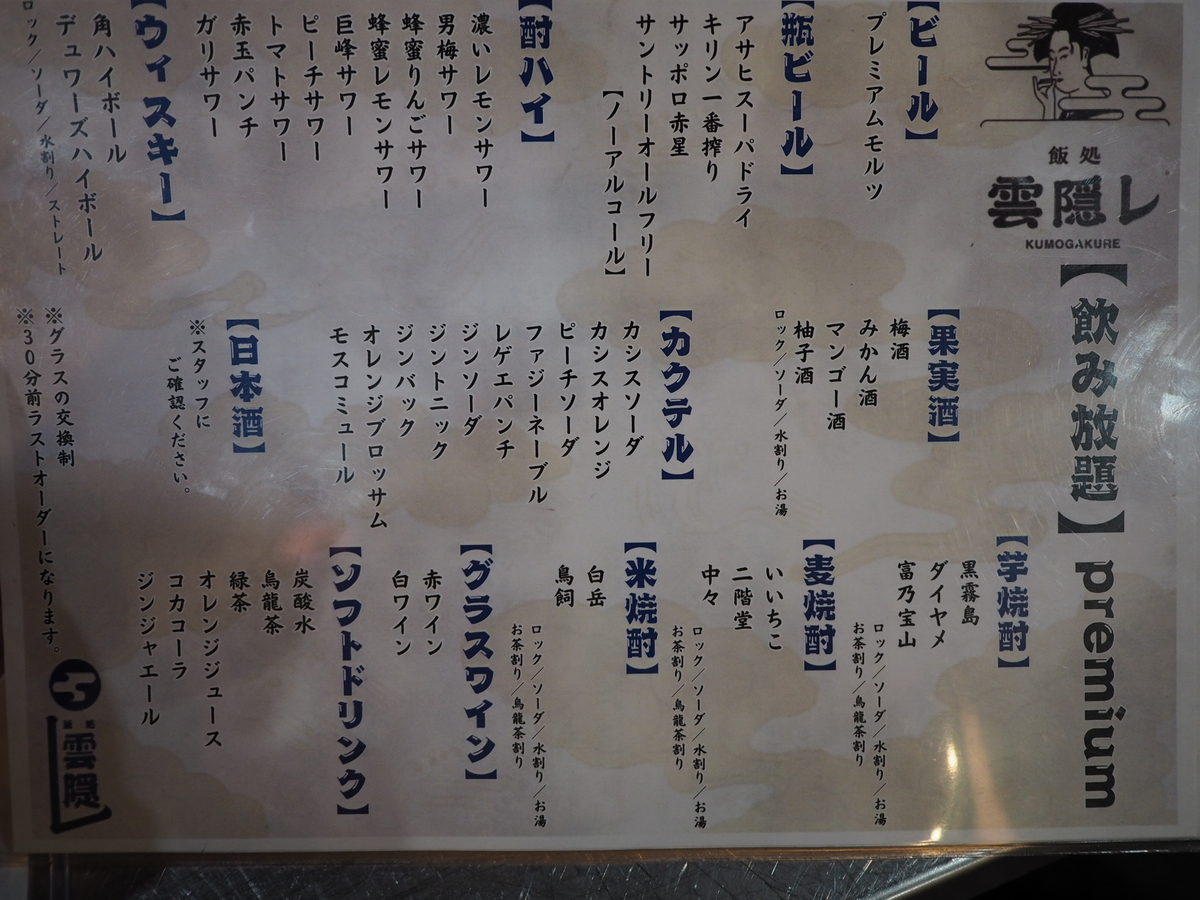 飯処
雲隠レ
KUMOGAKURE
【飲み放題】premium
【ビール】
プレミアムモルツ
【瓶ビール】
アサヒスーパドライ
キリン一番搾り
サッポロ赤星
サントリーオールフリー
【ノーアルコール】
【酎ハイ】
濃いレモンサワー
男梅サワー
蜂蜜りんごサワー
蜂蜜レモンサワー
巨峰サワー
ピーチサワー
トマトサワー
赤玉パンチ
ガリサワー
【ウィスキー】
角ハイボール
デュワーズハイボール
ロック／ソーダ／水割り／ストレート
【果実酒】
梅酒
みかん酒
マンゴー酒
柚子酒
ロック／ソーダ／水割り／お湯
【カクテル】
カシスソーダ
カシスオレンジ
ピーチソーダ
ファジーネーブル
レゲエパンチ
ジンソーダ
ジントニック
ジンバック
オレンジブロッサム
モスコミュール
【日本酒】
※スタッフに
ご確認ください。
【芋焼酎】
黒霧島
ダイヤメ
富乃宝山
ロック／ソーダ／水割り／お湯
お茶割り／烏龍茶割り
【麦焼酎】
いいちこ
二階堂
中々
ロック／ソーダ／水割り／お湯
お茶割り／烏龍茶割り
【米焼酎】
白岳
鳥飼
ロック／ソーダ／水割り／お湯
お茶割り／烏龍茶割り
【グラスワイン】
赤ワイン
白ワイン
【ソフトドリンク】
炭酸水
烏龍茶
緑茶
オレンジジュース
コカコーラ
ジンジャエール
※グラスの交換制
※30分前ラストオーダーになります。
飯処
雲隠レ